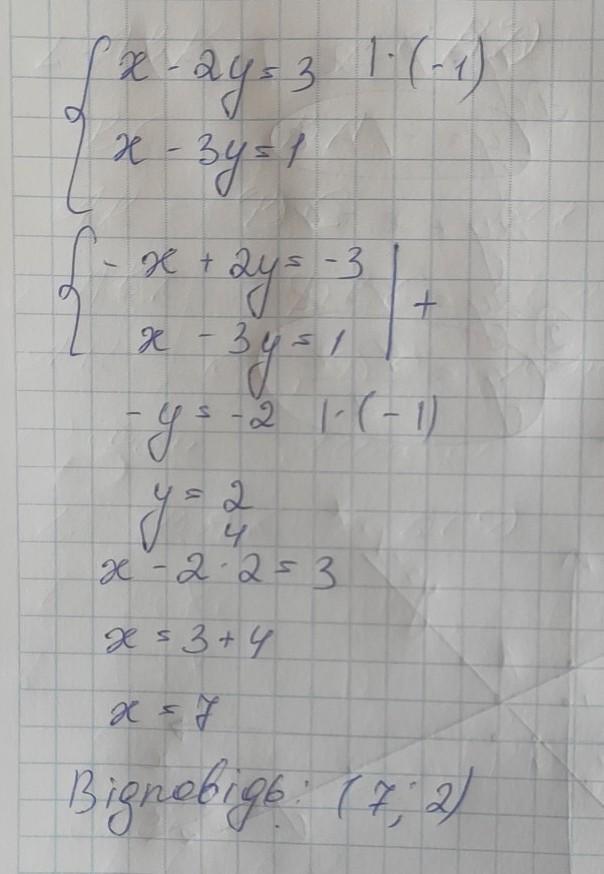 x - 2y = 3 | · (-1)
x - 3y = 1
- x + 2y = -3
x - 3y = 1 | +
- y = -2 | · (-1)
y = 2
4
x - 2 · 2 = 3
x = 3 + 4
x = 7
Відповідь: (7; 2)